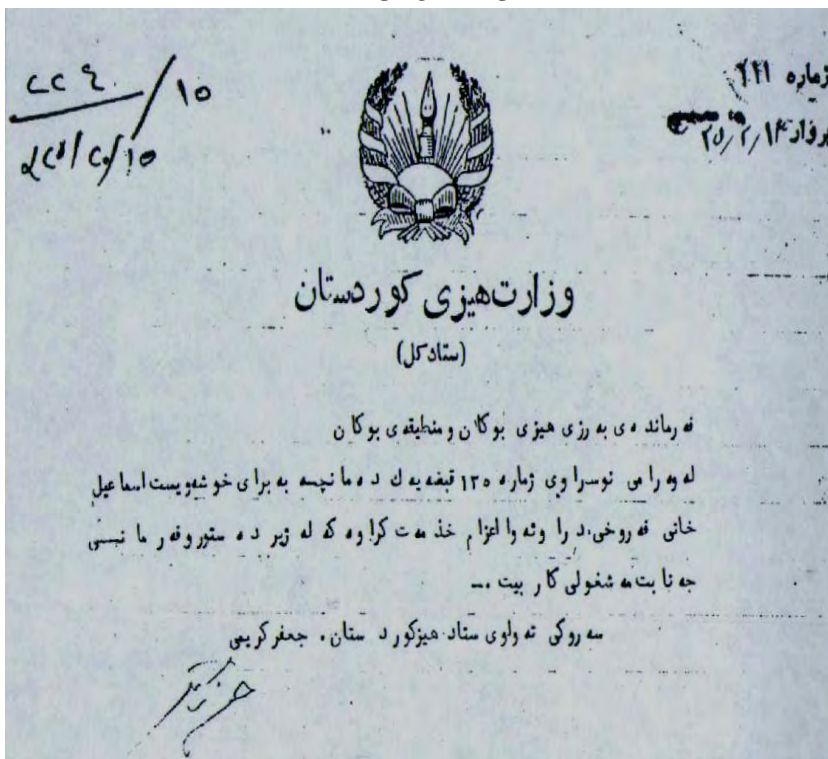 ژماره ٤٤١
بروار ٢٥/٢/١٤
١٥/
وزارت هیزی کوردستان
(ستادکل)
فه رمانده ی به رزی هیزی بوکان و منطیقه ی بوکان
له وه رامی نوسراوی ژماره ١٣٥ قبضه یه ك ده مانچسه به برای خوشه ویست اسماعیل
خانی فه روخی. درا وئه وا اعزام خذ مه ت کراوه که له ژیر ده ستور و فه ر ما نبسی
جه نا بت مه شغولی کار بیت .ــ
سه روکی ته واوی ستاد هیزکورد ستان . جعفرکریمی